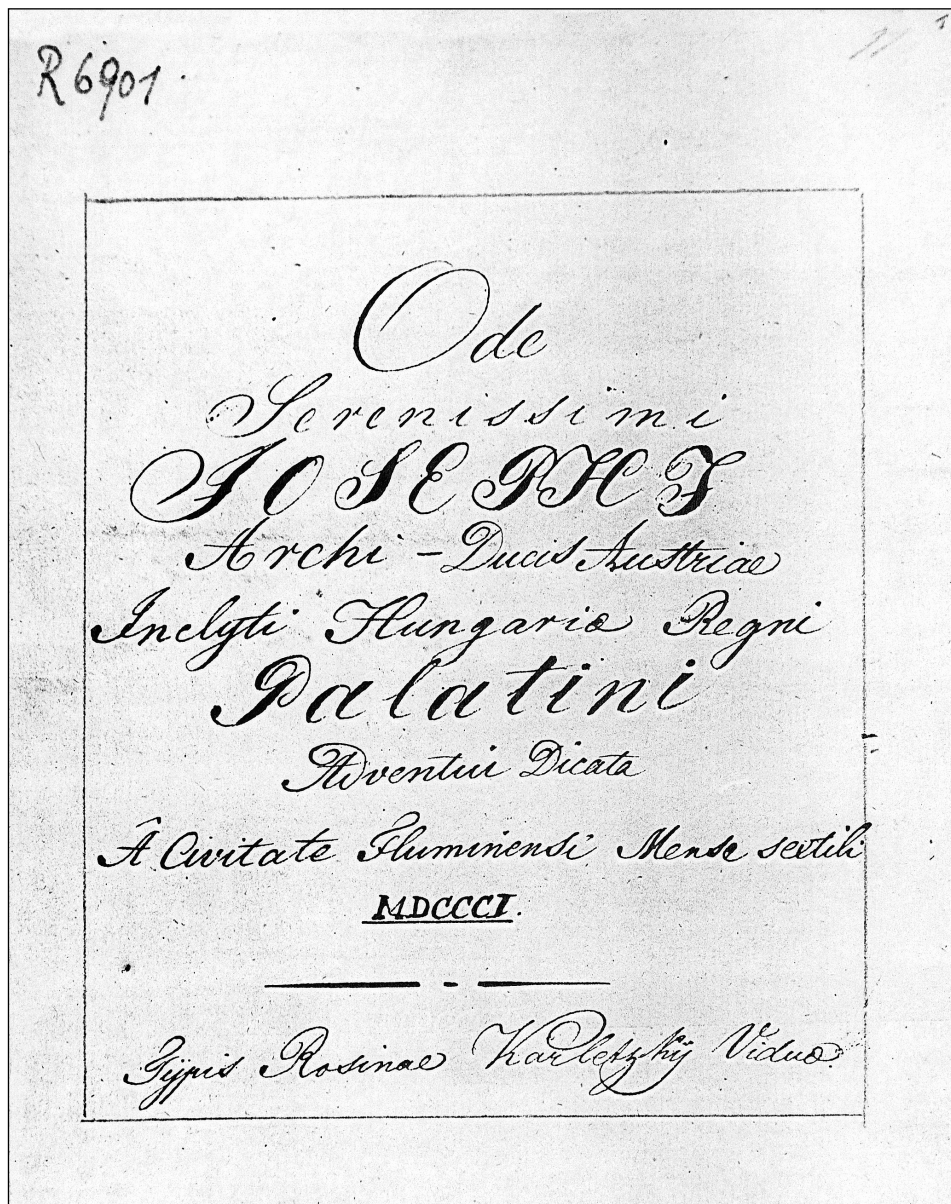 R 6901.
Ode
Serenissimi
IOSEPHI
Archi - Ducis Austriae
Inclyti Hungariæ Regni
Palatini
Adventui Dicata
Â Civitate Fluminensi Mense sextili
MDCCCI.
Typis Rosinae Karletzkÿ Viduæ.